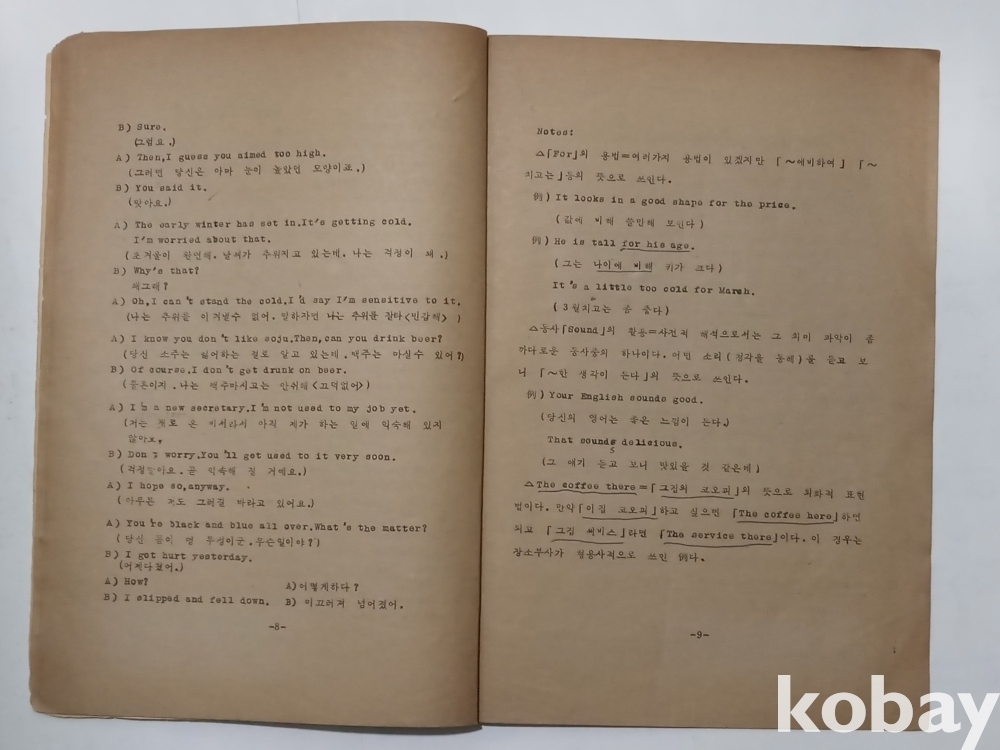 B) Sure.
(그럼요.)
A) Then,I guess you aimed too high.
(그러면 당신은 아마 눈이 높았던 모양이죠.)
B) You said it.
(맞아요.)
A) The early winter has set in.It's getting cold.
I'm worried about that.
(초겨울이 완연해. 날씨가 추워지고 있는데. 나는 걱정이 돼.)
B) Why's that?
왜그래?
A) Oh,I can't stand the cold.I'd say I'm sensitive to it.
(나는 추위를 이겨낼수 없어. 말하자면 나는 추위를 잘타<민감해>)
A) I know you don't like soju.Then,can you drink beer?
(당신 소주는 싫어하는 걸로 알고 있는데. 맥주는 마실수 있어?)
B) Of course.I don't get drunk on beer.
(물론이지. 나는 맥주마시고는 안취해<끄덕없어>)
A) I'm a new secretary.I'm not used to my job yet.
(저는 새로 온 비서라서 아직 제가 하는 일에 익숙해 있지
않아요.
B) Don't worry.You'll get used to it very soon.
(걱정말아요. 곧 익숙해 질 거예요.)
A) I hope so,anyway.
(아무튼 저도 그러길 바라고 있어요.)
A) You're black and blue all over.What's the matter?
(당신 몸이 멍 투성이군. 무슨일이야?)
B) I got hurt yesterday.
(어제다쳤어.)
A) How? A)어떻게하다?
B) I slipped and fell down. B) 미끄러져 넘어졌어.
-8-
Notes:
△「For」의 용법=여러가지 용법이 있겠지만 「~에비하여」 「~
치고는」등의 뜻으로 쓰인다.
例) It looks in a good shape for the price.
(값에 비해 쓸만해 보인다)
例) He is tall for his age.
(그는 나이에 비해 키가 크다)
It's a little too cold for March.
(3월치고는 좀 춥다)
△동사「Sound」의 활용=사전적 해석으로서는 그 의미 파악이 좀
까다로운 동사중의 하나이다. 어떤 소리(청각을 통해)을 듣고 보
니 「~한 생각이 든다」의 뜻으로 쓰인다.
例) Your English sounds good.
(당신의 영어는 좋은 느낌이 든다.)
That sounds delicious.
(그 얘기 듣고 보니 맛있을 것 같은데)
△The coffee there=「그집의 코오피」의 뜻으로 회화적 표현
법이다. 만약「이집 코오피」하고 싶으면 「The coffee here」하면
되고 「그집 써비스」라면 「The service there」이다. 이 경우는
장소부사가 형용사적으로 쓰인 例다.
-9-
kobay